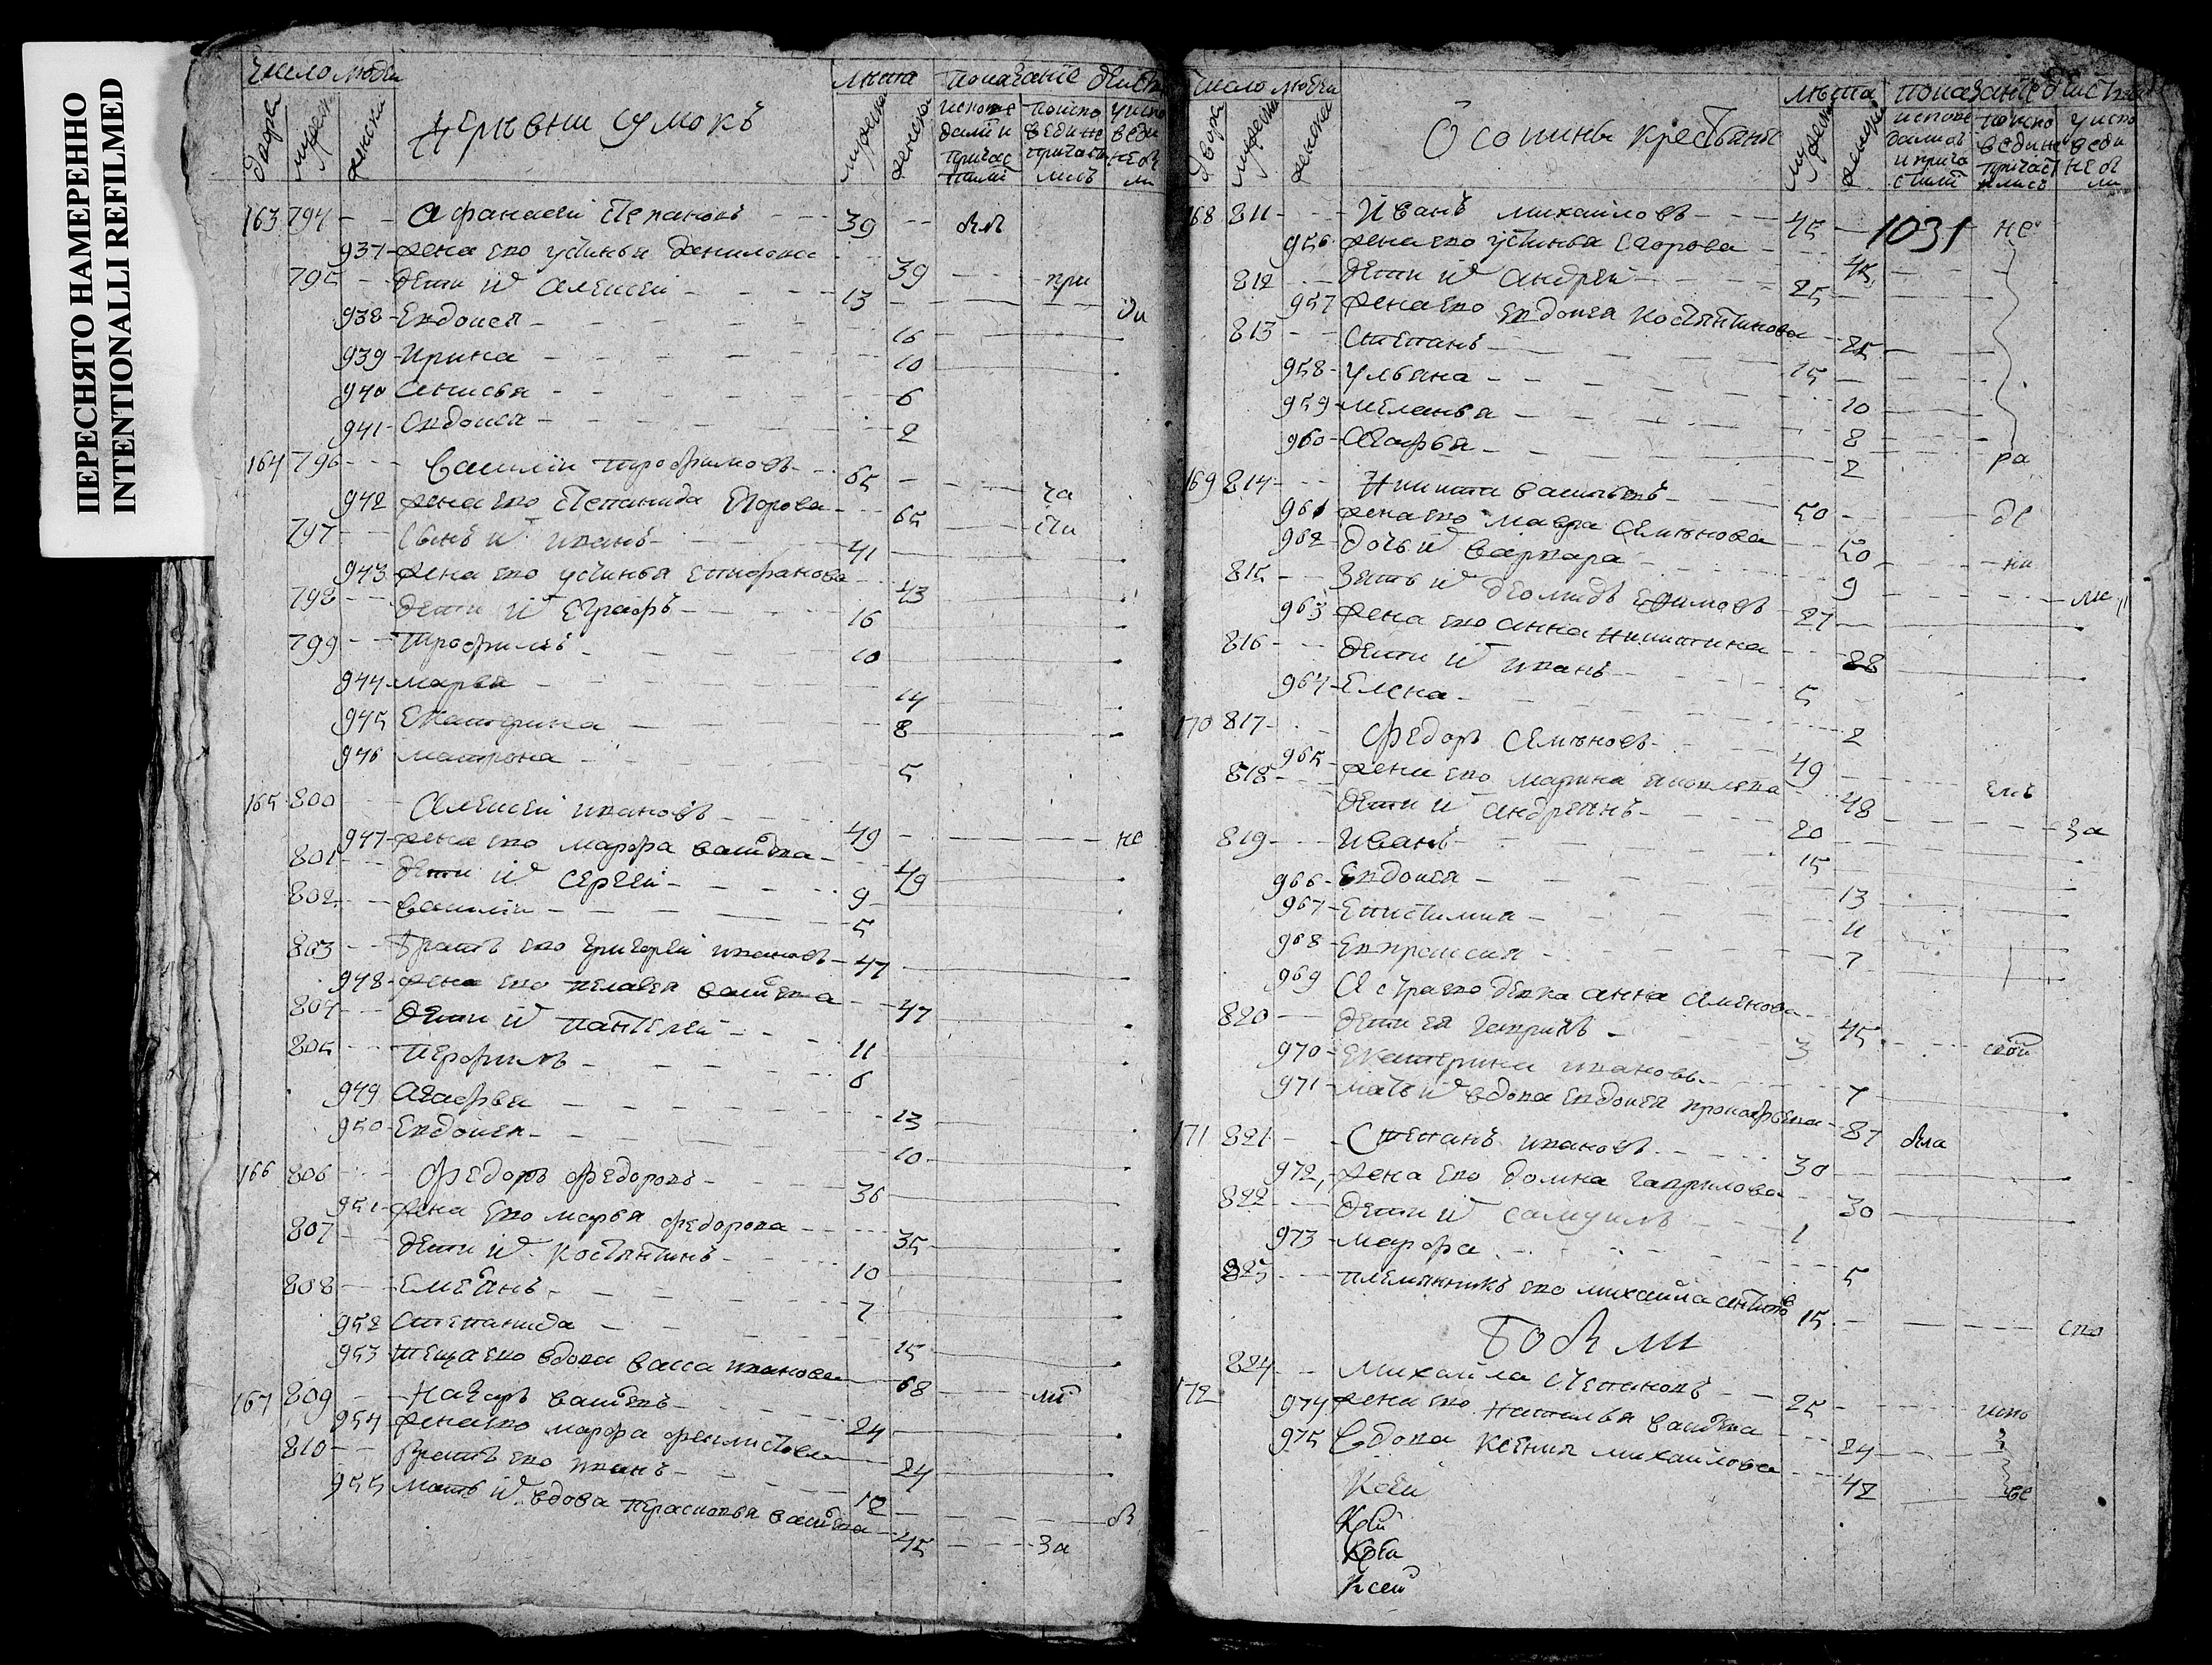 ПЕРЕСНЯТО НАМЕРЕННО
INTENTIONALLI REFILMED
число людей
лѣта
показаніе
дворы
мужеска
женска
мужеска
женска
испове
дались и
причас
тились
по испо
веди не
причаст
лись
у испо
веди
не бы
ли
163 794 - - Афанасеи Степановъ - - 39 - -
937 - жена ево устинья данилова - - 39 - -
795 - дети их Алексеи - - 13 при
938 - Евдокея - - 16
939 - Ирина - - 10
940 Анисья - - 6
941 - Овдокея - - 2
164 796 - - Василии трофимовъ - - 65
942 жена ево Степанида Егорова - - 65 ча
797 - Сынъ их иванъ - - 41 сти
943 жена ево устинья епифанова - - 43
798 - - дети их Еграфъ - - 16
799 - - трофимъ - - 10
944 марья - - 14
945 Екатерина - - 8
946 матрона - - 5
165 800 - - Алексеи ивановъ - - 49 не
947 - жена ево марфа васильева - - 49
801 - - дети их Сергеи - - 9
802 - - василии - - 5
803 - - братъ ево григореи ивановъ - 47
948 - жена ево пелагея васильева - - 47
804 - - дети их пантелеи - - 11
805 - - перфилъ - - 6
949 Агафья - - 13
950 - Евдокея - - 10
166 806 - - федоръ федоровъ - - 36
951 - жена ево марья федорова - - 35
807 - - дети их костянтинъ - - 10
808 - - Емельянъ - - 7
952 Степанида - - 15
953 теща ево вдова васса иванова - 68
167 809 - - Назаръ васильевъ - - 24
954 жена ево марфа феклистова - 24
810 - - братъ ево иванъ - - 12
955 мать их вдова перасковья васильева - - 45 за
число людеи
лѣта
показаніе
дворы
мужеска
женска
Осотины крестьяне
мужеска
женска
испове
дались
и прича
стились
по испо
веди не
причаст
ились
у испо
веди
не бы
ли
168 811 - - Иванъ михаиловъ - - 45 - 1031 не
956 жена ево устинья Егорова - 45
812 - - дети их Андреи - - 25
957 жена ево Евдокея костянтинова - 25
813 - - Степанъ - - 15
958 - ульяна - - 10
959 - меланья - - 8
960 - Агафья - - 2 ра
169 814 - - Никита васильевъ - - 50
961 жена ево мавра Семенова - - 50
962 - дочь их варвара - - 9
815 - - Зять их деомидъ Ефимовъ - 27
963 жена ево анна никитина - - 28
816 - - дети их иванъ - - 5
964 - Елена - - 2
170 817 - - федоръ Семеновъ - - 49
965 - жена ево марина яковлева - 48
818 - - дети их андреянъ - - 20 за
819 - - Иванъ - - 15
966 - Евдокея - - 13
967 - Епистимия - - 11
968 - Евпраксия - - 7
969 Анна Семенова - - 45
820 - - дети ея гаврилъ - - 3
970 - Екатерина иванова - - 7
971 - мать их вдова евдокея прокофьева - 87
171 821 - - Степанъ ивановъ - - 30
972 - жена ево домна гаврилова - 30
822 - - дети их самуилъ - - 1
973 - марфа - - 5
823 - - племянникъ ево михаила антипов 15 - спо
824 - - михаила степановъ - - 25
172
974 жена ево наталья васильева - - 24
975 вдова ксения михаилова - - 42
Ксеи
Ксеи